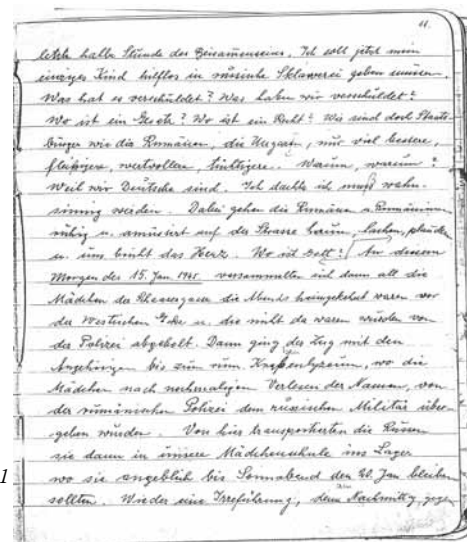 11.
letzte halbe Stunde des Beisammenseins. Ich soll jetzt mein
einziges Kind hilflos in russische Sklaverei geben müssen.
Was hat es verschuldet? Was haben wir verschuldet?
Wo ist ein Gesetz? Wo ist ein Recht? Wir sind doch Staats-
bürger wie die Rumänen, die Ungarn, nur viel bessere,
fleißigere, wertvollere, tüchtigere. Warum, warum?
Weil wir Deutsche sind. Ich dachte ich muss wahn-
sinnig werden. Dabei gehen die Rumänen u. Rumäninnen
ruhig u. amüsiert auf der Strasse herum, lachen, plaudern
u. uns bricht das Herz. Wo ist Gott? An diesem
Morgen des 15. Jan. 1945 versammelten sich dann all die
Mädchen der die Abends heimgekehrt waren vor
der u. die nicht da waren wurden von
der Polizei abgeholt. Dann ging der Zug mit den
Angehörigen bis zum rum. wo die
Mädchen nach nochmaligen Verlesen der Namen, von
der rumänischen Polizei dem russischen Militär über-
geben wurden. Von hier transportierten die Russen
sie dann in unsere Mädchenschule ins Lager
1 wo sie angeblich bis Sonnabend den 20. Jan bleiben
sollten. Wieder eine Irreführung, denn Nachmittag gegen